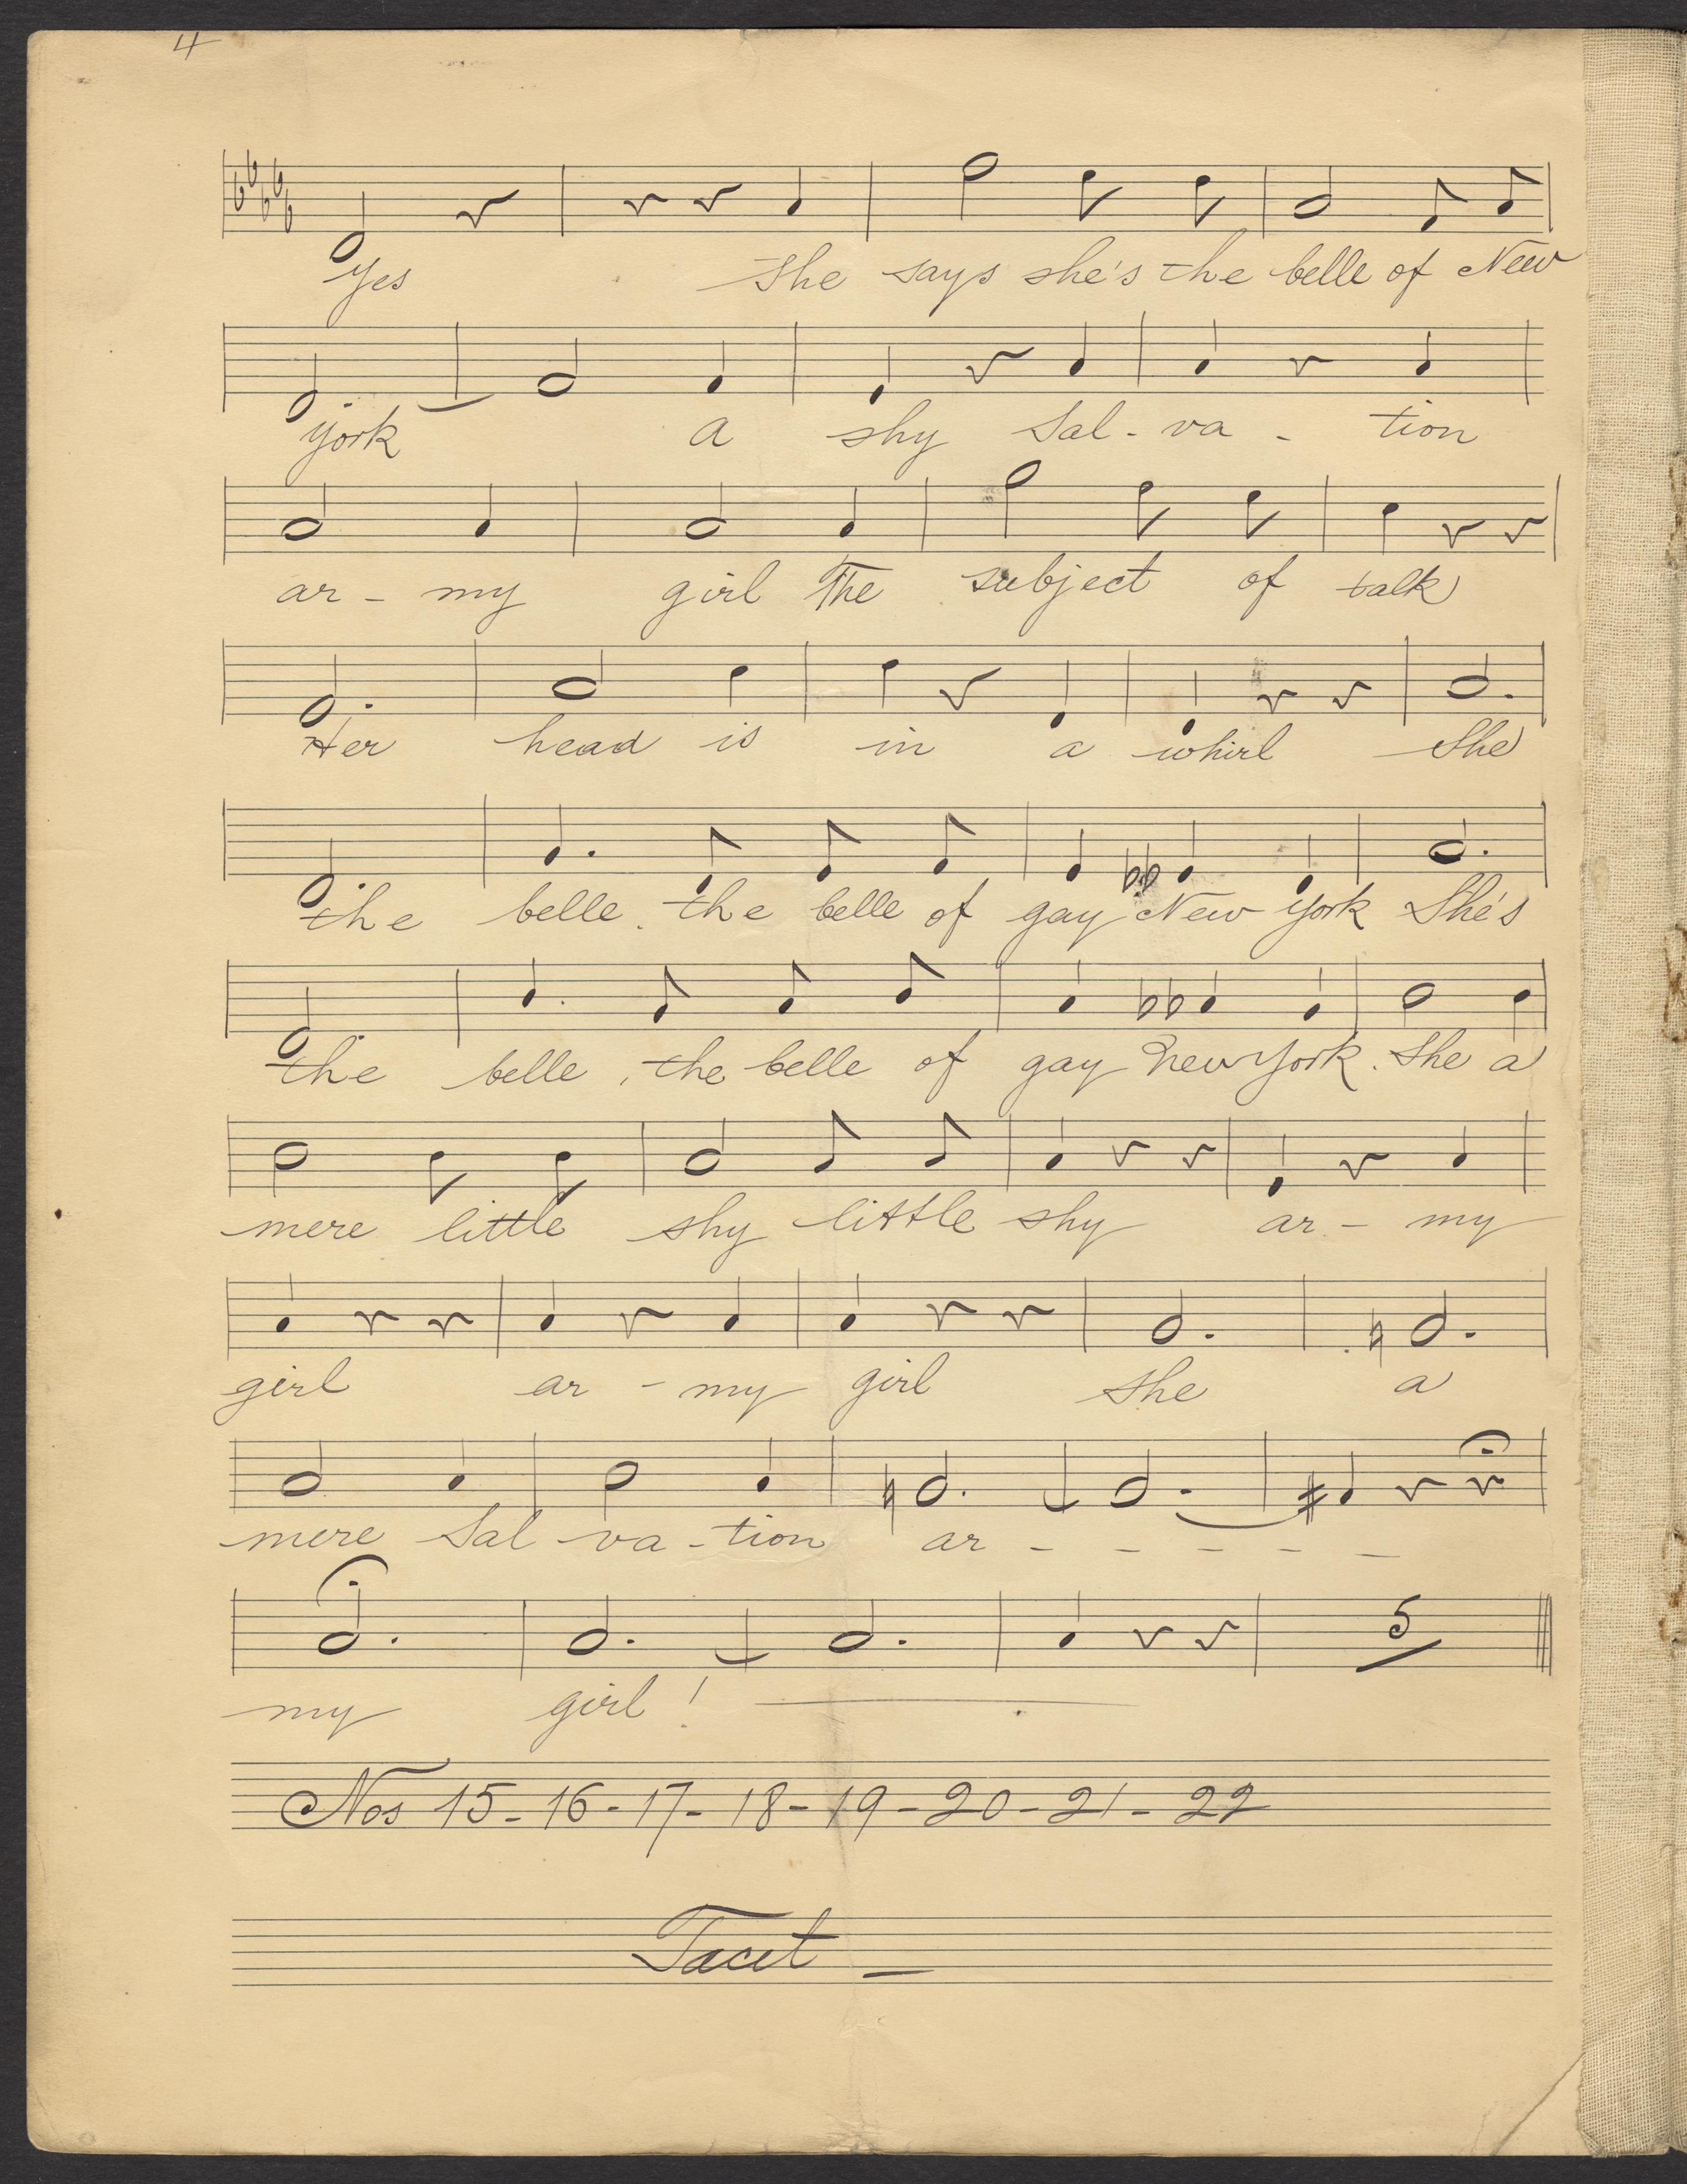 4
Yes She says she's the belle of New
York a shy Sal - va - tion
ar - my girl The subject of talk
Her head is in a whirl She
the belle. the belle of gay New York She's
the belle, the belle of gay new York. She a
mere little shy little shy ar - my
girl ar - my girl she a
mere Sal - va - tion ar - - - - -
my girl!
5
Nos 15 - 16 - 17 - 18 - 19 - 20 - 21 - 22
Tacet -